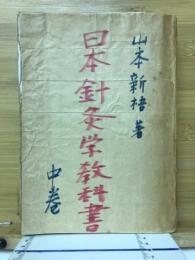 山本新梧著
日本針灸学教科書
中巻